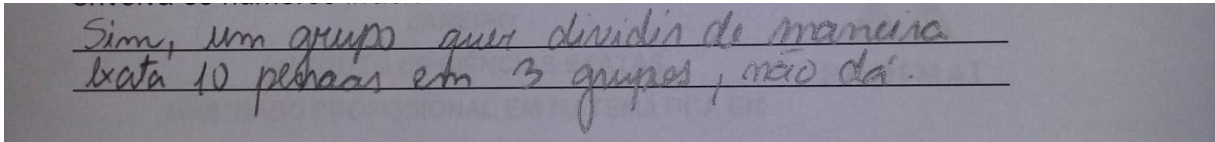 Sim, um grupo quer dividir de maneira
exata 10 pessoas em 3 grupos, não dá.